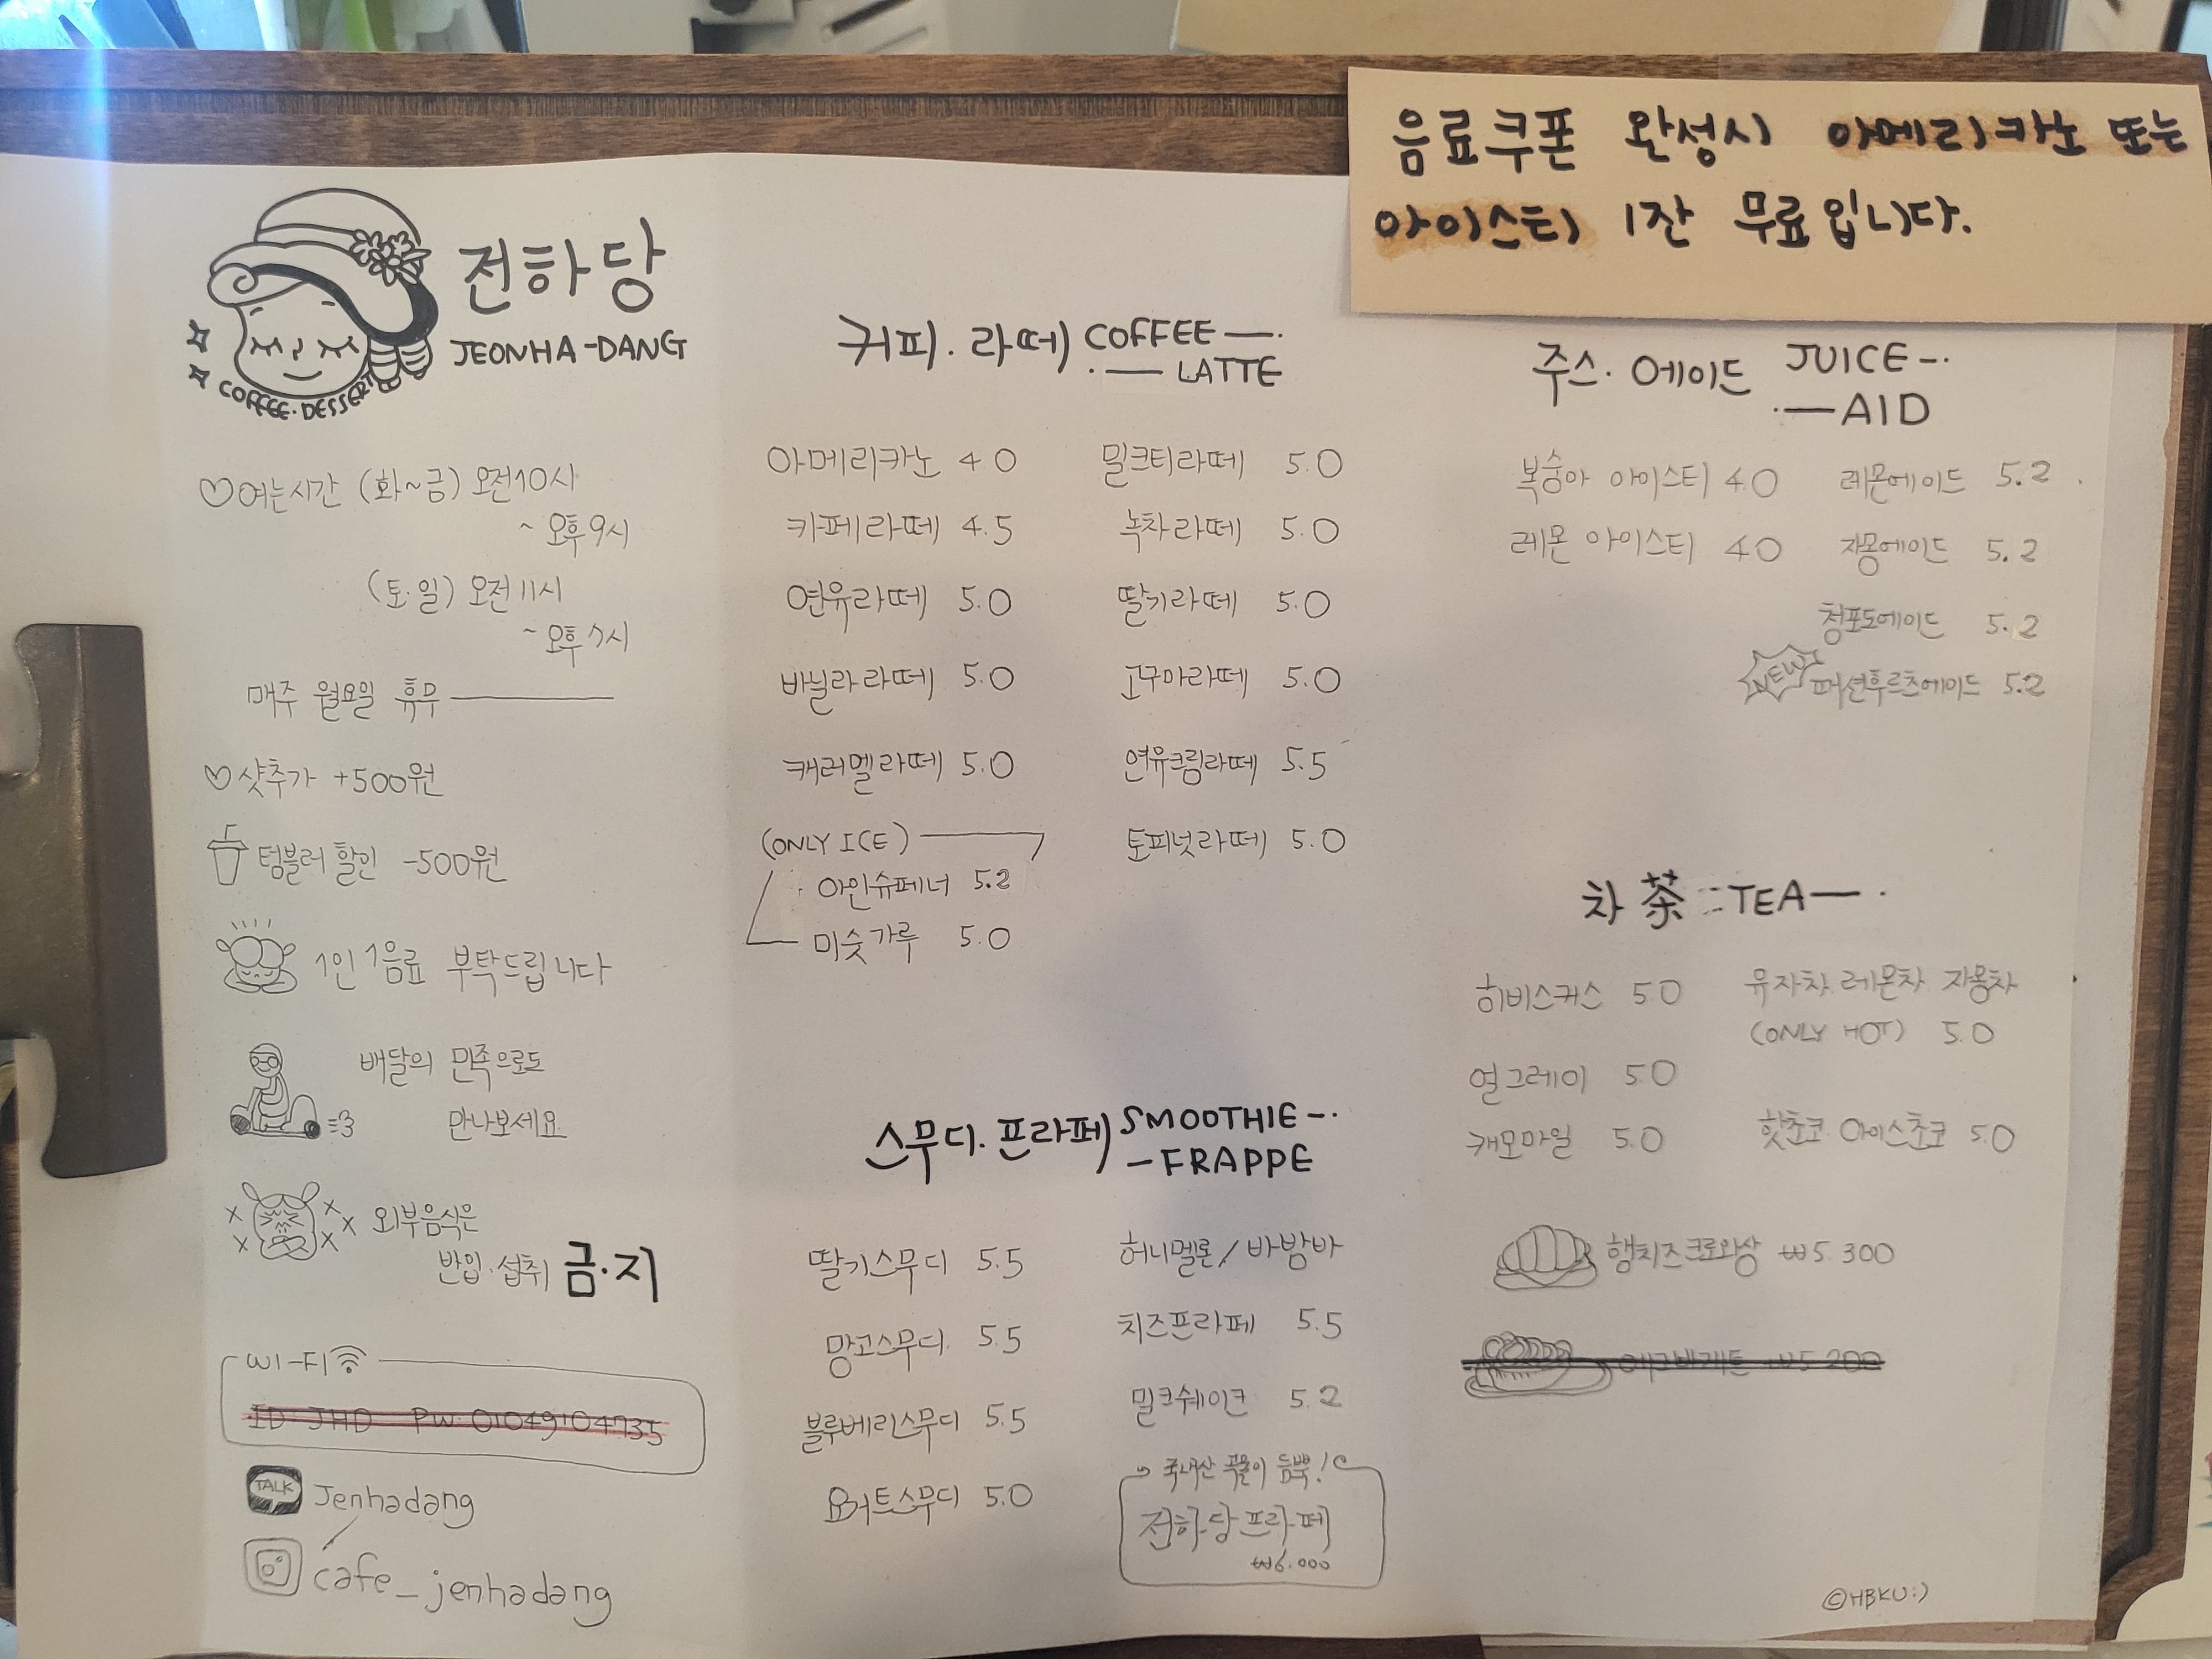 음료쿠폰 완성시 아메리카노 또는
아이스티 1잔 무료입니다.
전하당
JEONHA-DANG
COFFEE·DESSERT
여는시간 (화~금) 오전10시
~ 오후9시
(토·일) 오전11시
~ 오후7시
매주 월요일 휴무
샷추가 +500원
텀블러 할인 -500원
1인 1음료 부탁드립니다
배달의 민족으로도
만나보세요
외부음식은
반입·섭취 금·지
WI-FI
ID: JHD PW: 01049104735
TALK Jenhadang
cafe_jenhadang
커피·라떼 COFFEE
LATTE
아메리카노 4.0
카페라떼 4.5
연유라떼 5.0
바닐라라떼 5.0
캐러멜라떼 5.0
(ONLY ICE)
아인슈페너 5.2
미숫가루 5.0
밀크티라떼 5.0
녹차라떼 5.0
딸기라떼 5.0
고구마라떼 5.0
연유크림라떼 5.5
토피넛라떼 5.0
스무디·프라페 SMOOTHIE
FRAPPE
딸기스무디 5.5
망고스무디 5.5
블루베리스무디 5.5
요거트스무디 5.0
허니멜론/바밤바
치즈프라페 5.5
밀크쉐이크 5.2
국내산 곡물이 듬뿍!
전하당프라페
₩6.000
주스·에이드 JUICE
AID
복숭아 아이스티 4.0
레몬 아이스티 4.0
레몬에이드 5.2
자몽에이드 5.2
청포도에이드 5.2
NEW 패션후르츠에이드 5.2
차 茶 TEA
히비스커스 5.0
얼그레이 5.0
캐모마일 5.0
유자차·레몬차·자몽차
(ONLY HOT) 5.0
핫초코·아이스초코 5.0
햄치즈크로와상 ₩5.300
에그바게트 ₩5.200
©HBKU:)